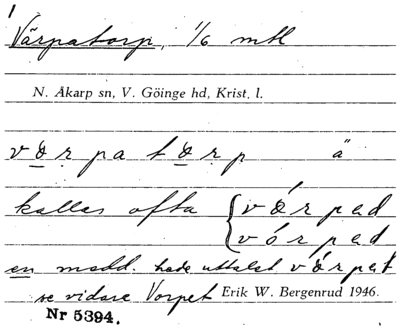 1
Värpatorp, 1/6 mtl
N. Åkarp sn, V. Göinge hd, Krist. l.
vœ̱rpatœ̱rp ä
kallas ofta { vœ́rpad
vórpad
en medd. hade uttalet vœ́rpat
se vidare Vorpet Erik W. Bergenrud 1946.
Nr 5394.